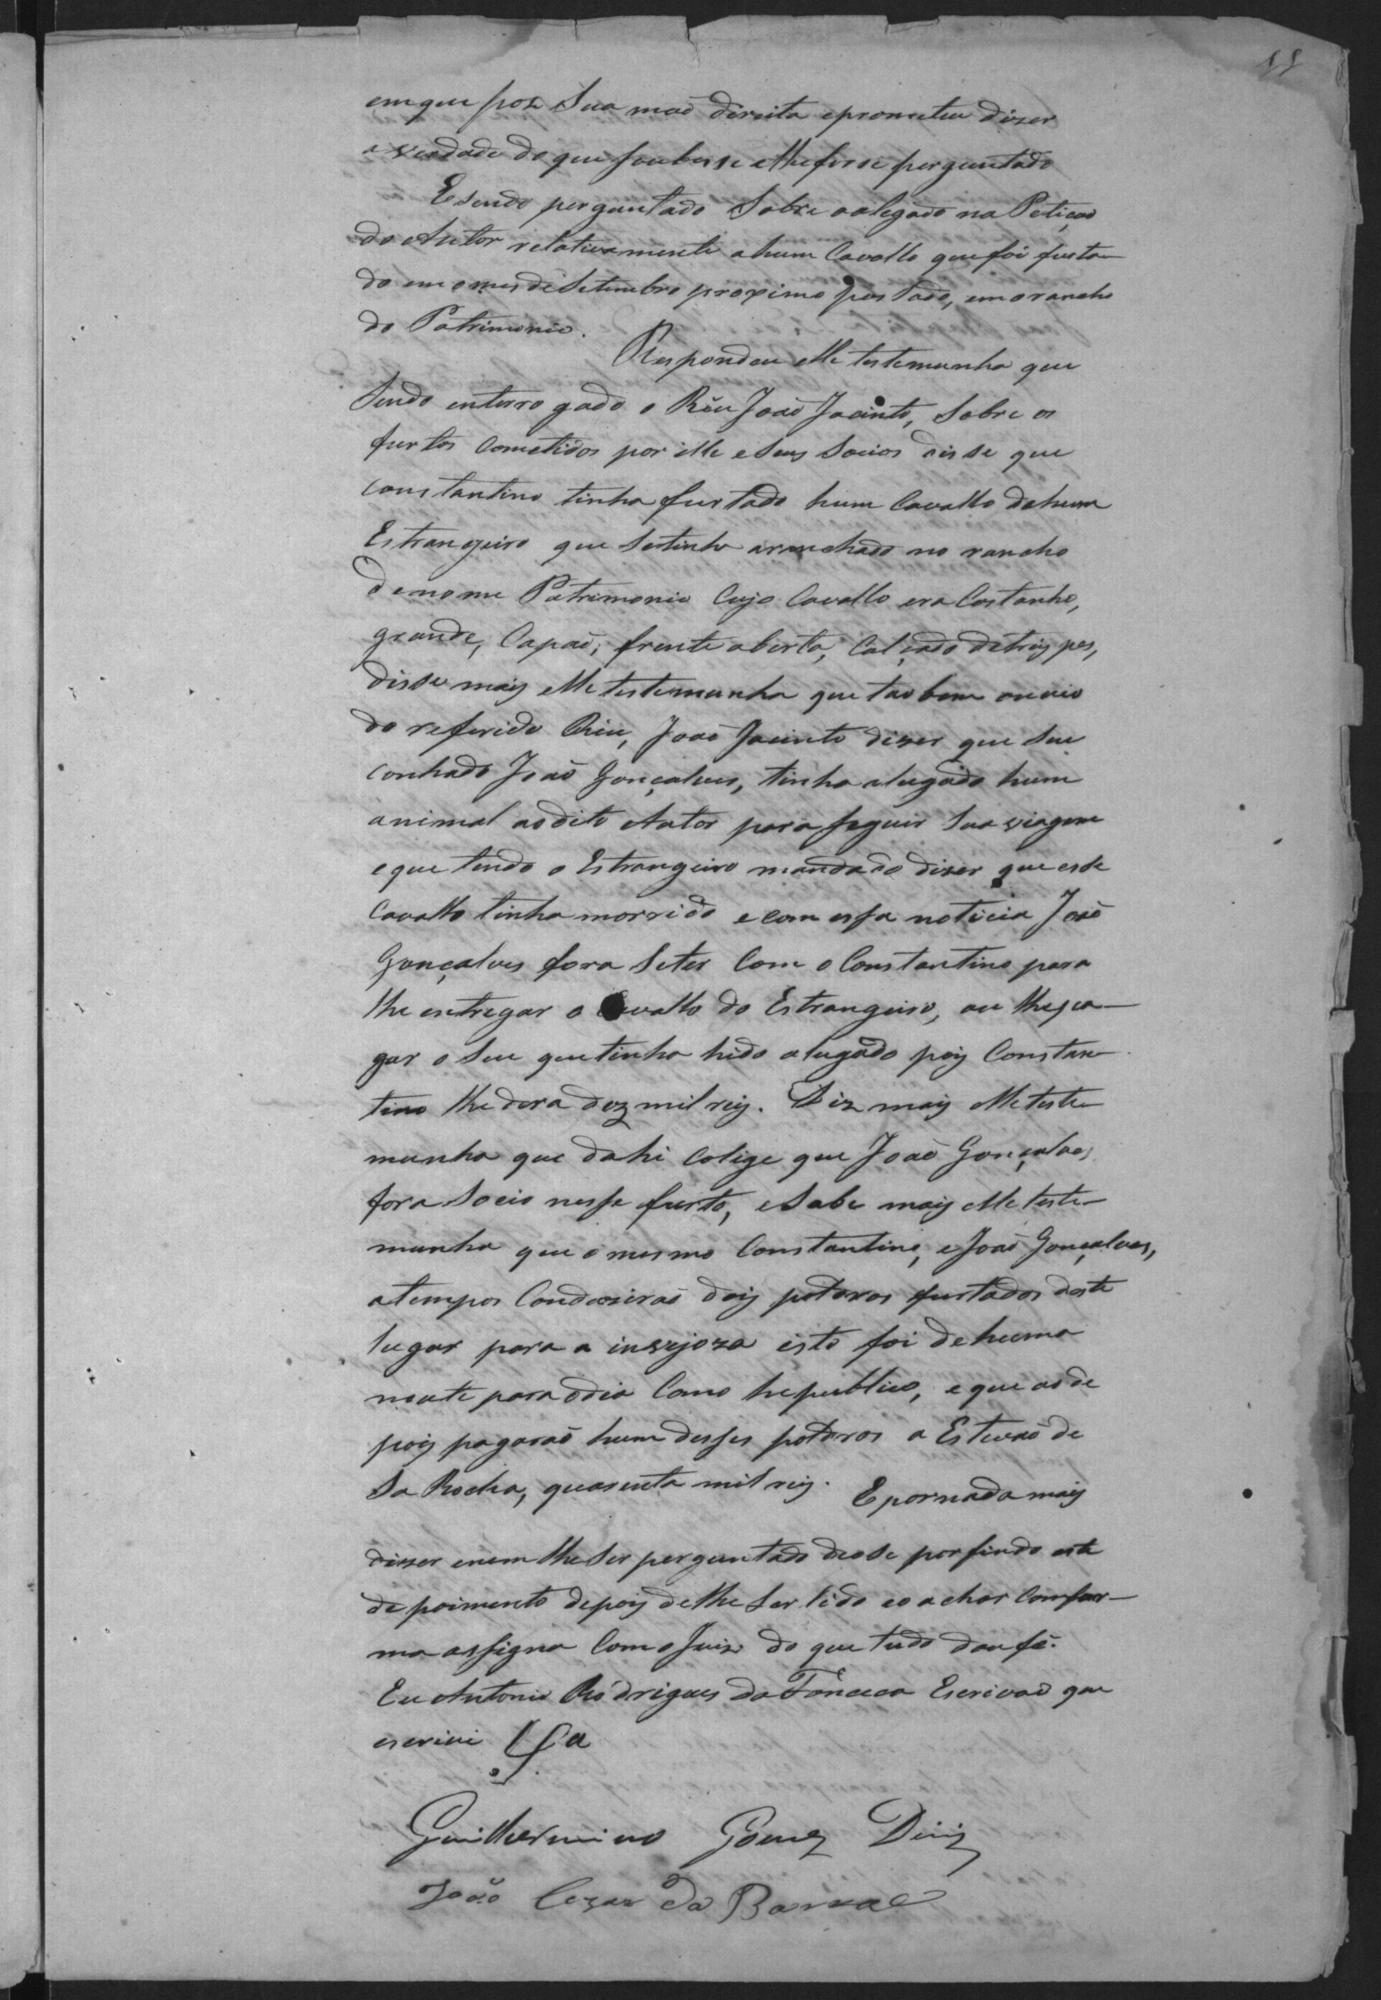 11
em que poz Sua maõ direita e prometeu dizer
a verdade do que soubesse e lhe fosse perguntado
E sendo perguntado Sobre o alegado na Petiçaõ
do Autor relativamente a hum Cavallo que foi furta-
do em o mes de Setembro proximo passado, em o rancho
do Patrimonio.
Respondeu elle testemunha que
Sendo enterrogado o Réu Joaõ Jacinto, Sobre os
furtos Cometidos por elle e Seus Socios disse que
Constantino tinha furtado hum Cavallo de hum
Estrangeiro que Se tinha aranchado no rancho
de nome Patrimonio Cujo Cavallo era Castanho,
grande, Capaõ, frente aberta, Calçado de tres pes,
disse mais elle testemunha que taobem ouvio
do referido Réu, Joaõ Jacinto dizer que Seu
Conhado Joaõ Gonçalves, tinha alugado hum
animal ao dito Autor para Seguir Sua viagem
e que tendo o Estrangeiro mandado dizer que esse
Cavallo tinha morrido e com essa noticia Joaõ
Gonçalves fora Se ter Com o Constantino para
lhe entregar o Cavallo do Estrangeiro, ou lhe pa-
gar o Seu que tinha hido alugado pois Constan-
tino lhe dera dez mil reis. Diz mais elle teste-
munha que dahi Colige que Joaõ Gonçalves
fora Socio nesse furto, e Sabe mais elle teste-
munha que o mesmo Constantino, e Joaõ Gonçalves,
a tempos Conduziraõ dois potros furtados deste
lugar para a invejoza isto foi de huma
noute para o dia Como he publico, e que ao de
pois pagaraõ hum desses potros a Estevaõ de
Sa Rocha, quarenta mil reis. E por nada mais
dizer e nem lhe Ser perguntado deose por findo este
depoimento depois de lhe Ser lido e o achar Confor-
me assigna Com o Juiz do que tudo dou fé.
Eu Antonio Rodrigues da Fonceca Escrivaõ que
escrivi
Guilhermino Gomes Diniz
Joaõ Cezar da